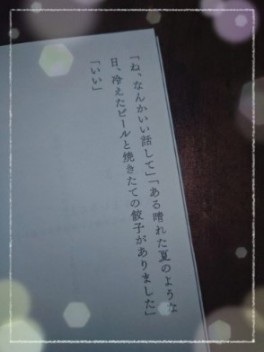 「ね、なんかいい話して」「ある晴れた夏のような
日、冷えたビールと焼きたての餃子がありました」
「いい」